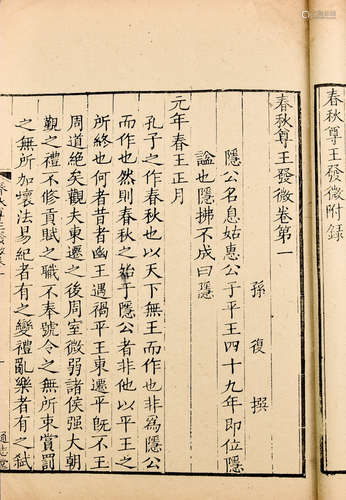 春秋尊王發微附錄
春秋尊王發微卷第一
孫復 撰
隱公名息姑惠公子平王四十九年即位隱
謚也隱拂不成曰隱
元年春王正月
孔子之作春秋也以天下無王而作也非為隱公
而作也然則春秋之始于隱公者非他以平王之
所終也何者昔者幽王遇禍平王東遷平既不王
周道絕矣觀夫東遷之後周室微弱諸侯强大朝
覲之禮不修貢賦之職不奉號令之無所束賞罰
之無所加壞法易紀者有之變禮亂樂者有之弒
通志堂